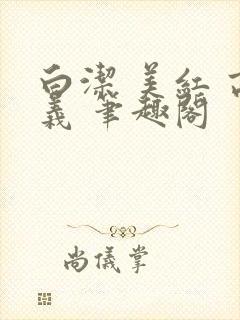 白潔 美紅 高
義 筆趣閣
尚儀掌